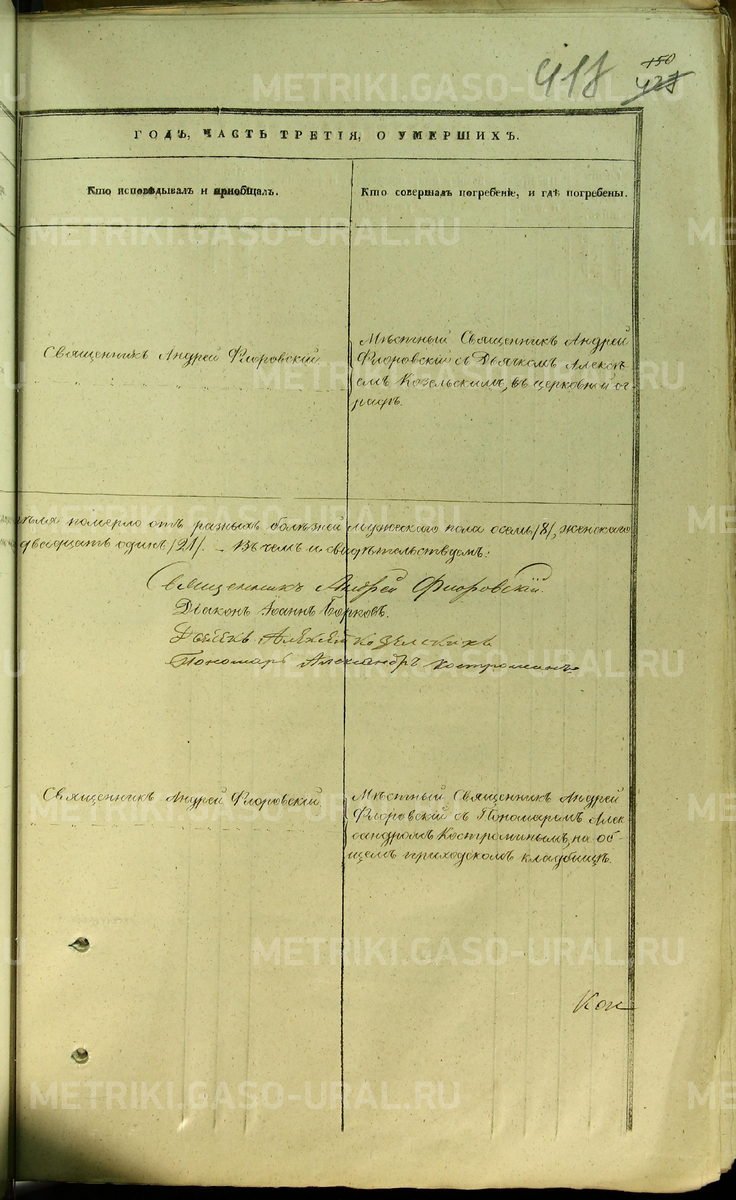 418
150
423
ГОДѢ, ЧАСТЬ ТРЕТІЯ, О УМЕРШИХЪ.
Кто исповѣдывалъ и приобщалъ.
Кто совершалъ погребеніе, и гдѣ погребены.
Священникъ Андрей Флоровскій
Мѣстный Священникъ Андрей
Флоровскій съ Дьячкомъ Алексѣ-
емъ Козельскимъ, въ церковной ог-
радѣ.
померло отъ разныхъ болѣзней мужескаго пола осемь /8/, женскаго
двадцать один /21/. – Въ чемъ и свидѣтельствуемъ:
Священникъ Андрей Флоровскій.
Діаконъ Іоаннъ Борковъ.
Дьячекъ Алексей Козелскихъ
Пономарь Александръ Костроминъ
Священникъ Андрей Флоровскій
Мѣстный Священникъ Андрей
Флоровскій съ Пономаромъ Алек-
сандромъ Костроминымъ, на об-
щемъ приходскомъ кладбищѣ.
Кон
METRIKI.GASO-URAL.RU